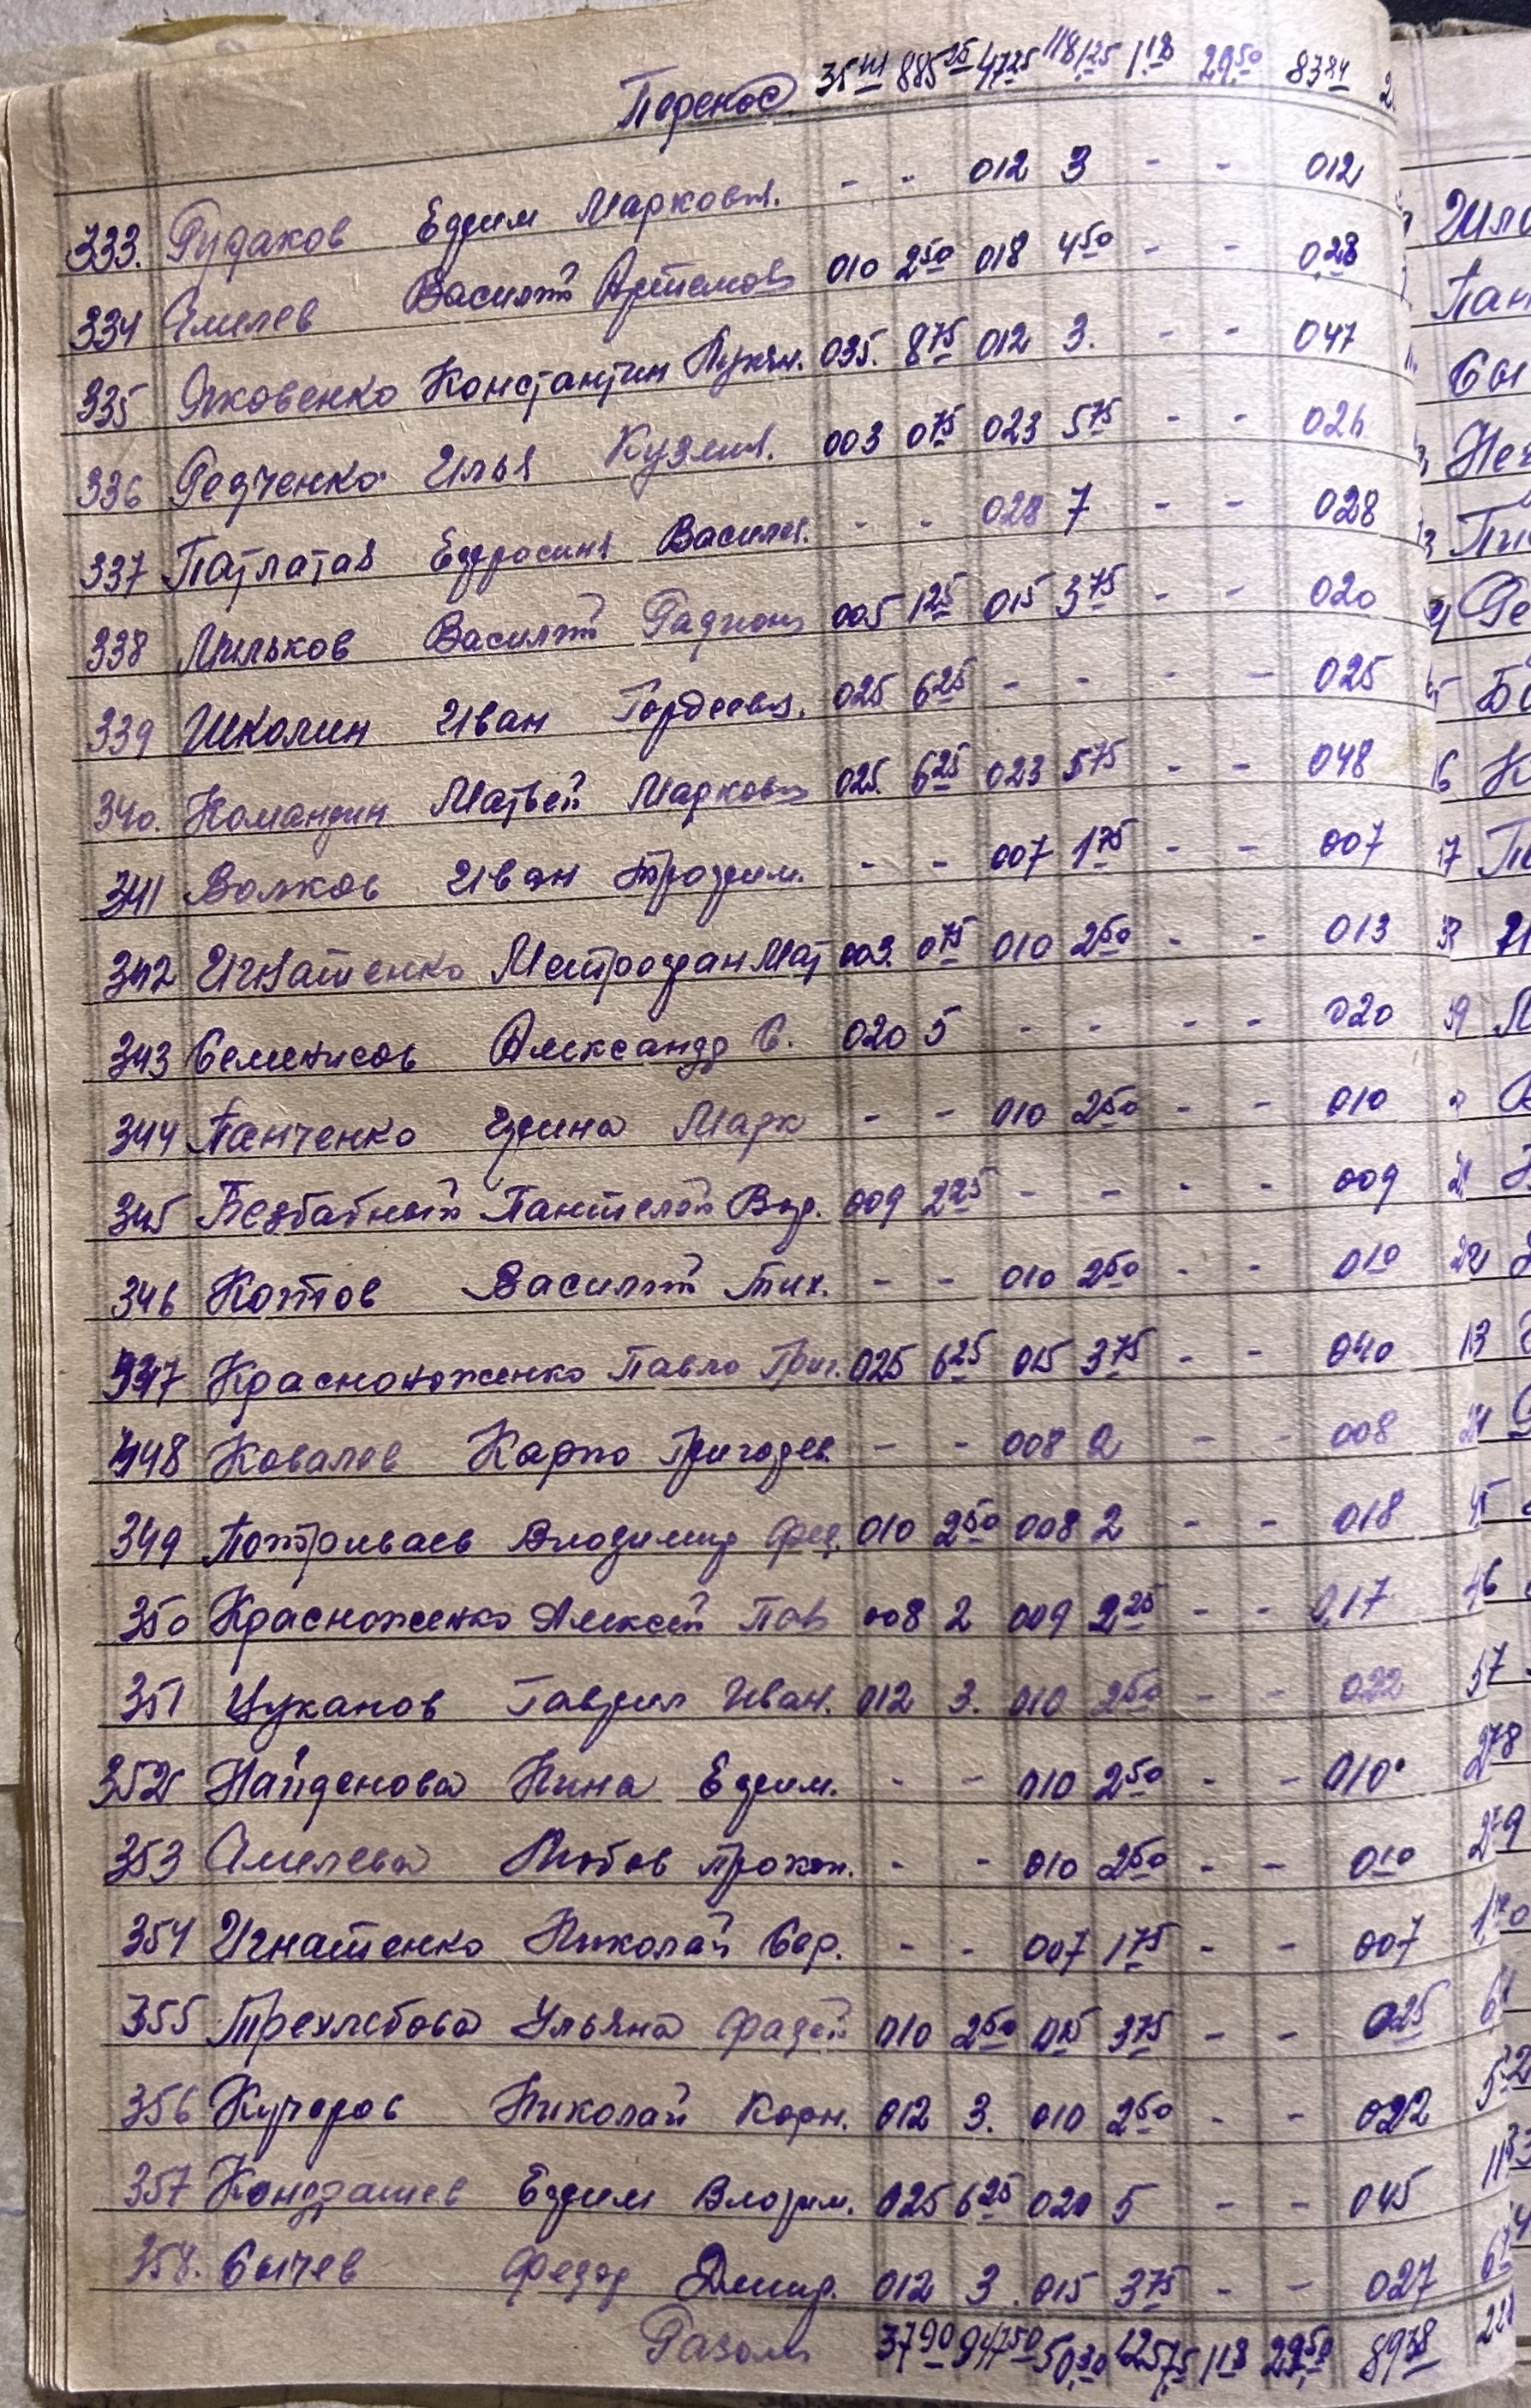 Перенос 35 41 885 25 47 25 1181 25 1 18 29 50 83 84
333. Рудаков Ефим Марков. - - 012 3 - - 012
334 Емелев Василий Артемов 010 2 50 018 4 50 - - 028
335 Яковенко Константин Лукян. 035. 8 75 012 3. - - 047
336 Редченко Илья Кузьм. 003 0 75 023 5 75 - - 026
337 Патлатая Ефросиня Василев. - - 028 7 - - 028
338 Мильков Василий Радион 005 1 25 015 3 75 - - 020
339 Школин Иван Гордеев. 025 6 25 - - - - 025
340. Командин Матвей Марков 025. 6 25 023 5 75 - - 048
341 Волков Иван Трофим. - - 007 1 75 - - 007
342 Игнатенко Метрофан Мат 003. 0 75 010 2 50 - - 013
343 Семенисов Александр С. 020 5 - - - - 020
344 Панченко Ефина Марк - - 010 2 50 - - 010
345 Безбабный Пантелей Вар. 009 2 25 - - - - 009
346 Котов Василий Тих. - - 010 2 50 - - 010
347 Красноноженко Павло Григ. 025 6 25 015 3 75 - - 040
348 Ковалев Карпо Григорев. - - 008 2 - - 008
349 Владимир Фед. 010 2 50 008 2 - - 018
350 Красноженко Алексей Пав 008 2 009 2 25 - - 0,17
351 Цуканов Гаврил Иван. 012 3. 010 2 50 - - 022
352 Найденова Нина Ефим. - - 010 2 50 - - 010
353 Емелева Любов Прокоп. - - 010 2 50 - - 010
354 Игнатенко Николай Сер. - - 007 1 75 - - 007
355 Трехлебова Ульяна Фадей 010 2 50 015 3 75 - - 025
356 Кучеров Николай Корн. 012 3. 010 2 50 - - 022
357 Кондрашев Ефим Владим. 025 6 25 020 5 - - 045
358. Сычев Федор Дмитр. 012 3 015 3 75 - - 027
Разом 37 90 947 50 50,30 1257,5 1 18 29 50 89 38